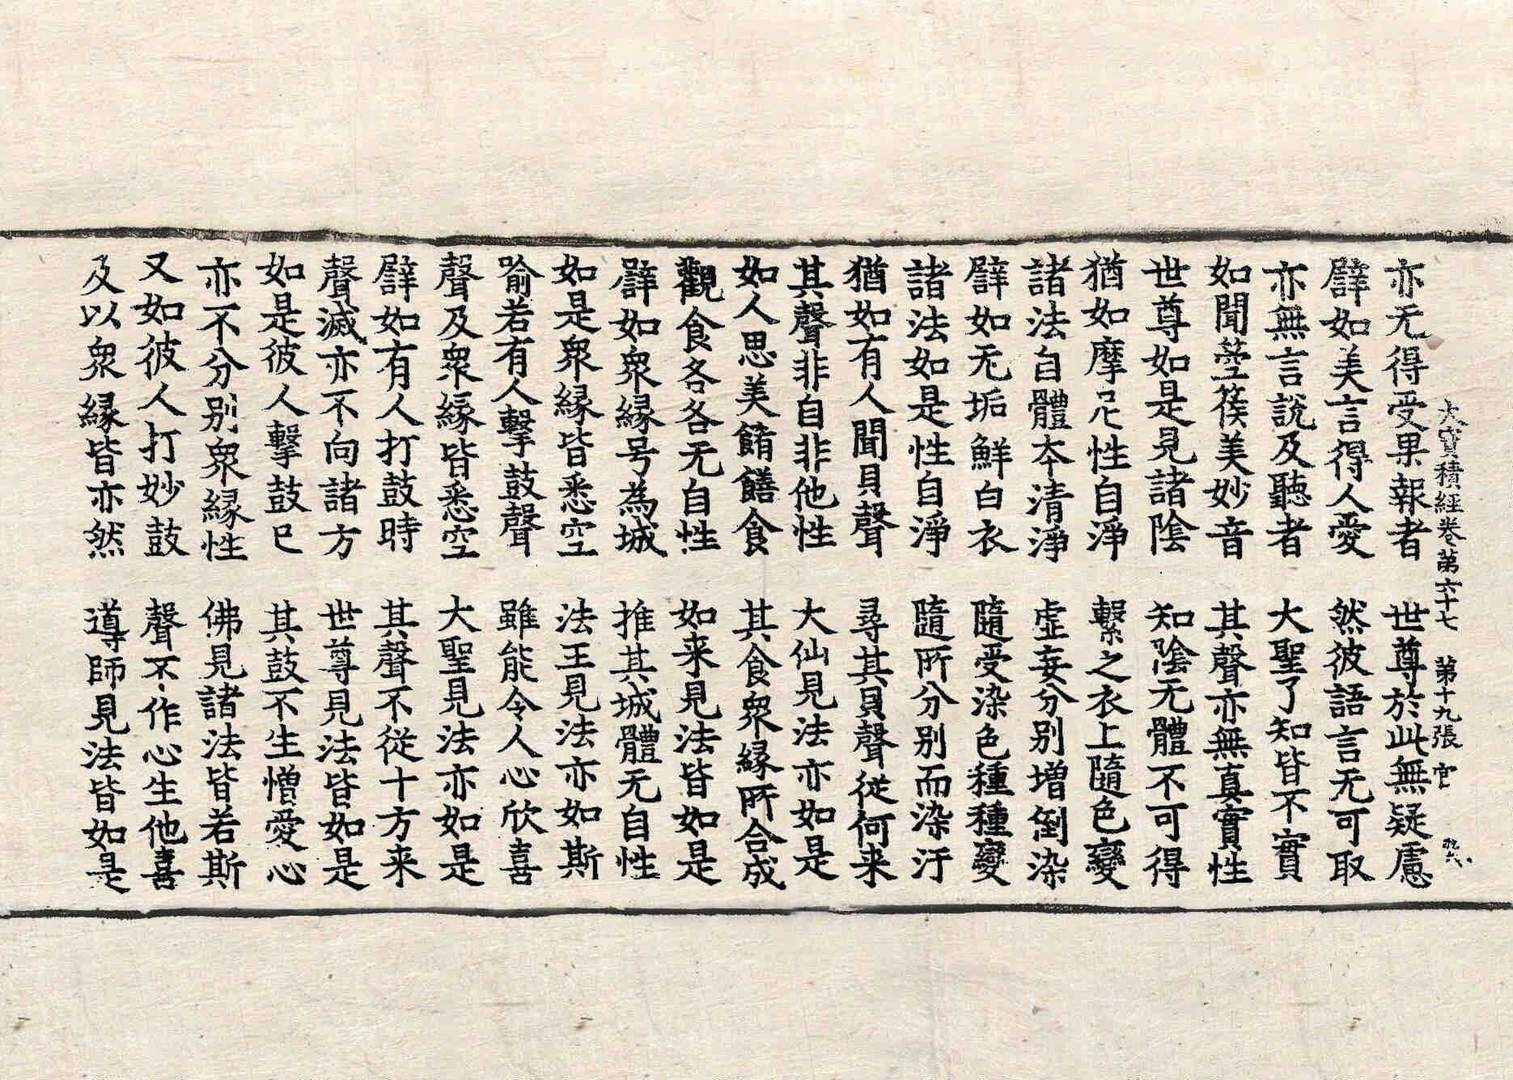 大寶積經卷第六十七　第十九張　官
亦无得受果報者　世尊於此無疑慮
譬如美言得人愛　然彼語言无可取
亦無言說及聽者　大聖了知皆不實
如聞箜篌美妙音　其聲亦無真實性
世尊如是見諸陰　知陰无體不可得
猶如摩尼性自淨　繫之衣上隨色變
諸法自體本清淨　虛妄分別增倒染
譬如无垢鮮白衣　隨受染色種種變
諸法如是性自淨　隨所分別而染汙
猶如有人聞貝聲　尋其貝聲從何来
其聲非自非他性　大仙見法亦如是
如人思美餚饍食　其食衆緣所合成
觀食各各无自性　如来見法皆如是
譬如衆緣号為城　推其城體无自性
如是衆緣皆悉空　法王見法亦如斯
喻若有人擊鼓聲　雖能令人心欣喜
聲及衆緣皆悉空　大聖見法亦如是
譬如有人打鼓時　其聲不從十方来
聲滅亦不向諸方　世尊見法皆如是
如是彼人擊鼓已　其鼓不生憎愛心
亦不分別衆緣性　佛見諸法皆若斯
又如彼人打妙鼓　聲不作心生他喜
及以衆緣皆亦然　導師見法皆如是